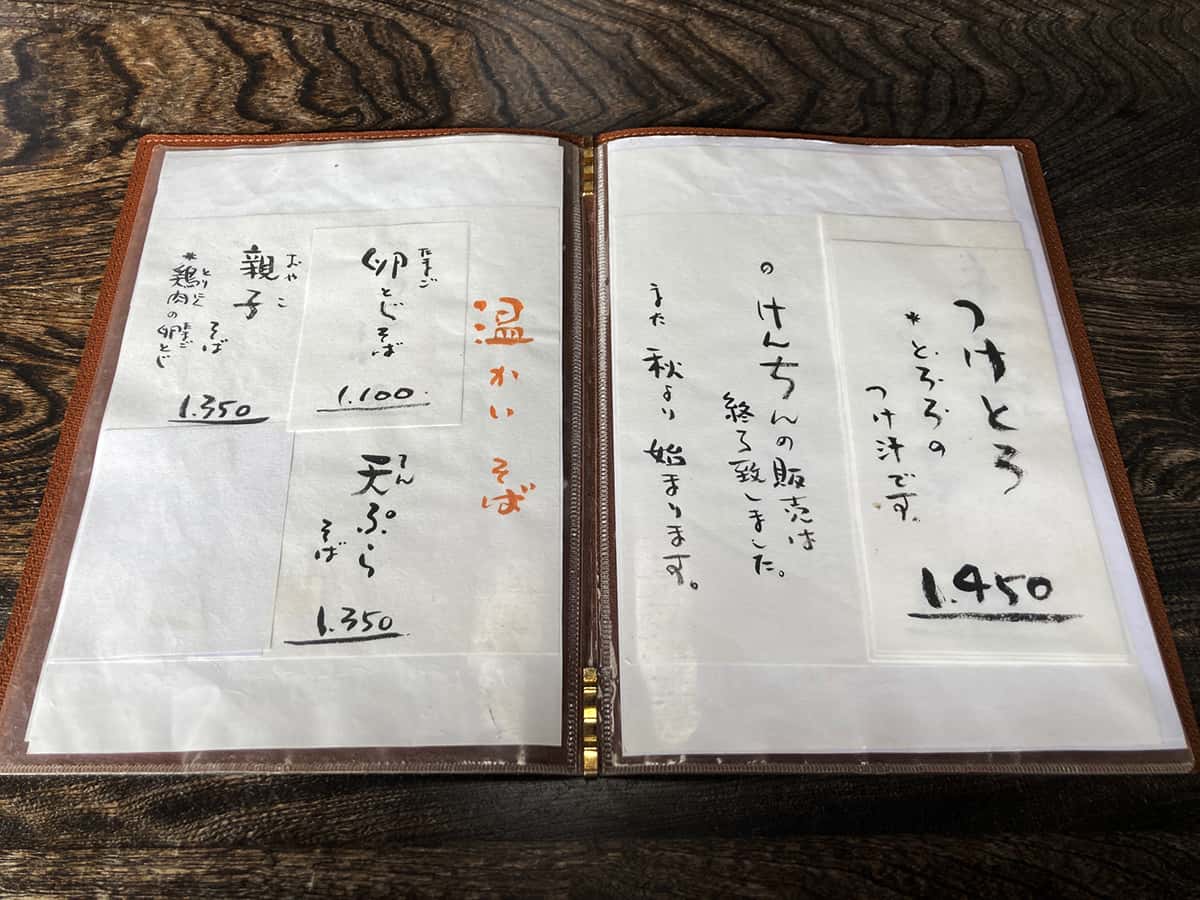 つけとろ
＊とろろの
つけ汁です。
1.450
の けんちんの販売は
終了致しました。
また 秋より 始まります。
温かい そば
たまご
卵とじそば
1.100
てん
天ぷら
そば
1.350
おやこ
親子
そば
とりにく たまご
＊鶏肉の卵とじ
1.350